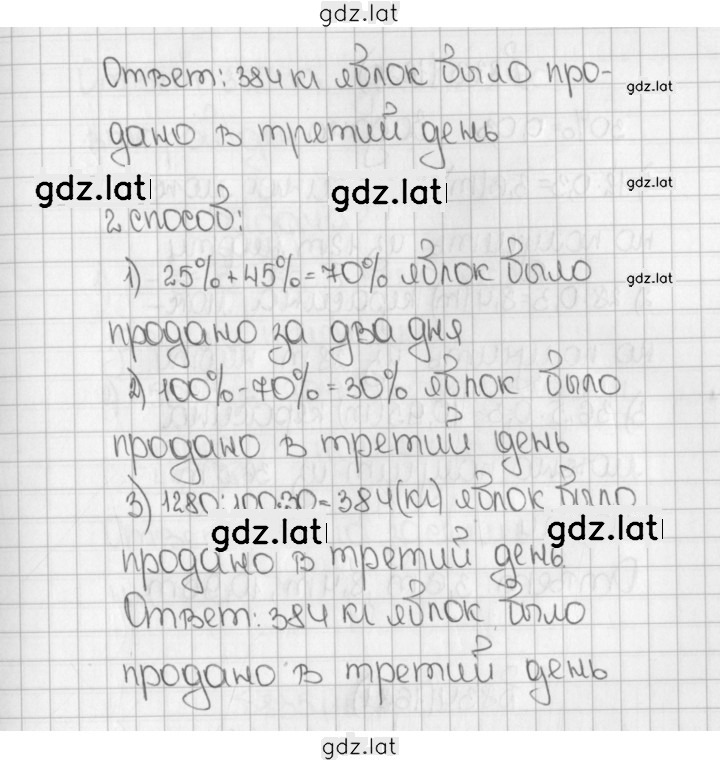 gdz.lat
Ответ: 384 кг яблок было про-
gdz.lat
дано в третий день
gdz.lat gdz.lat gdz.lat
2 способ:
1) 25% + 45% = 70% яблок было
gdz.lat
продано за два дня
2) 100% - 70% = 30% яблок было
продано в третий день
3) 1280:100·30=384(кг) яблок было
gdz.lat gdz.lat
продано в третий день.
Ответ: 384 кг яблок было
продано в третий день
gdz.lat